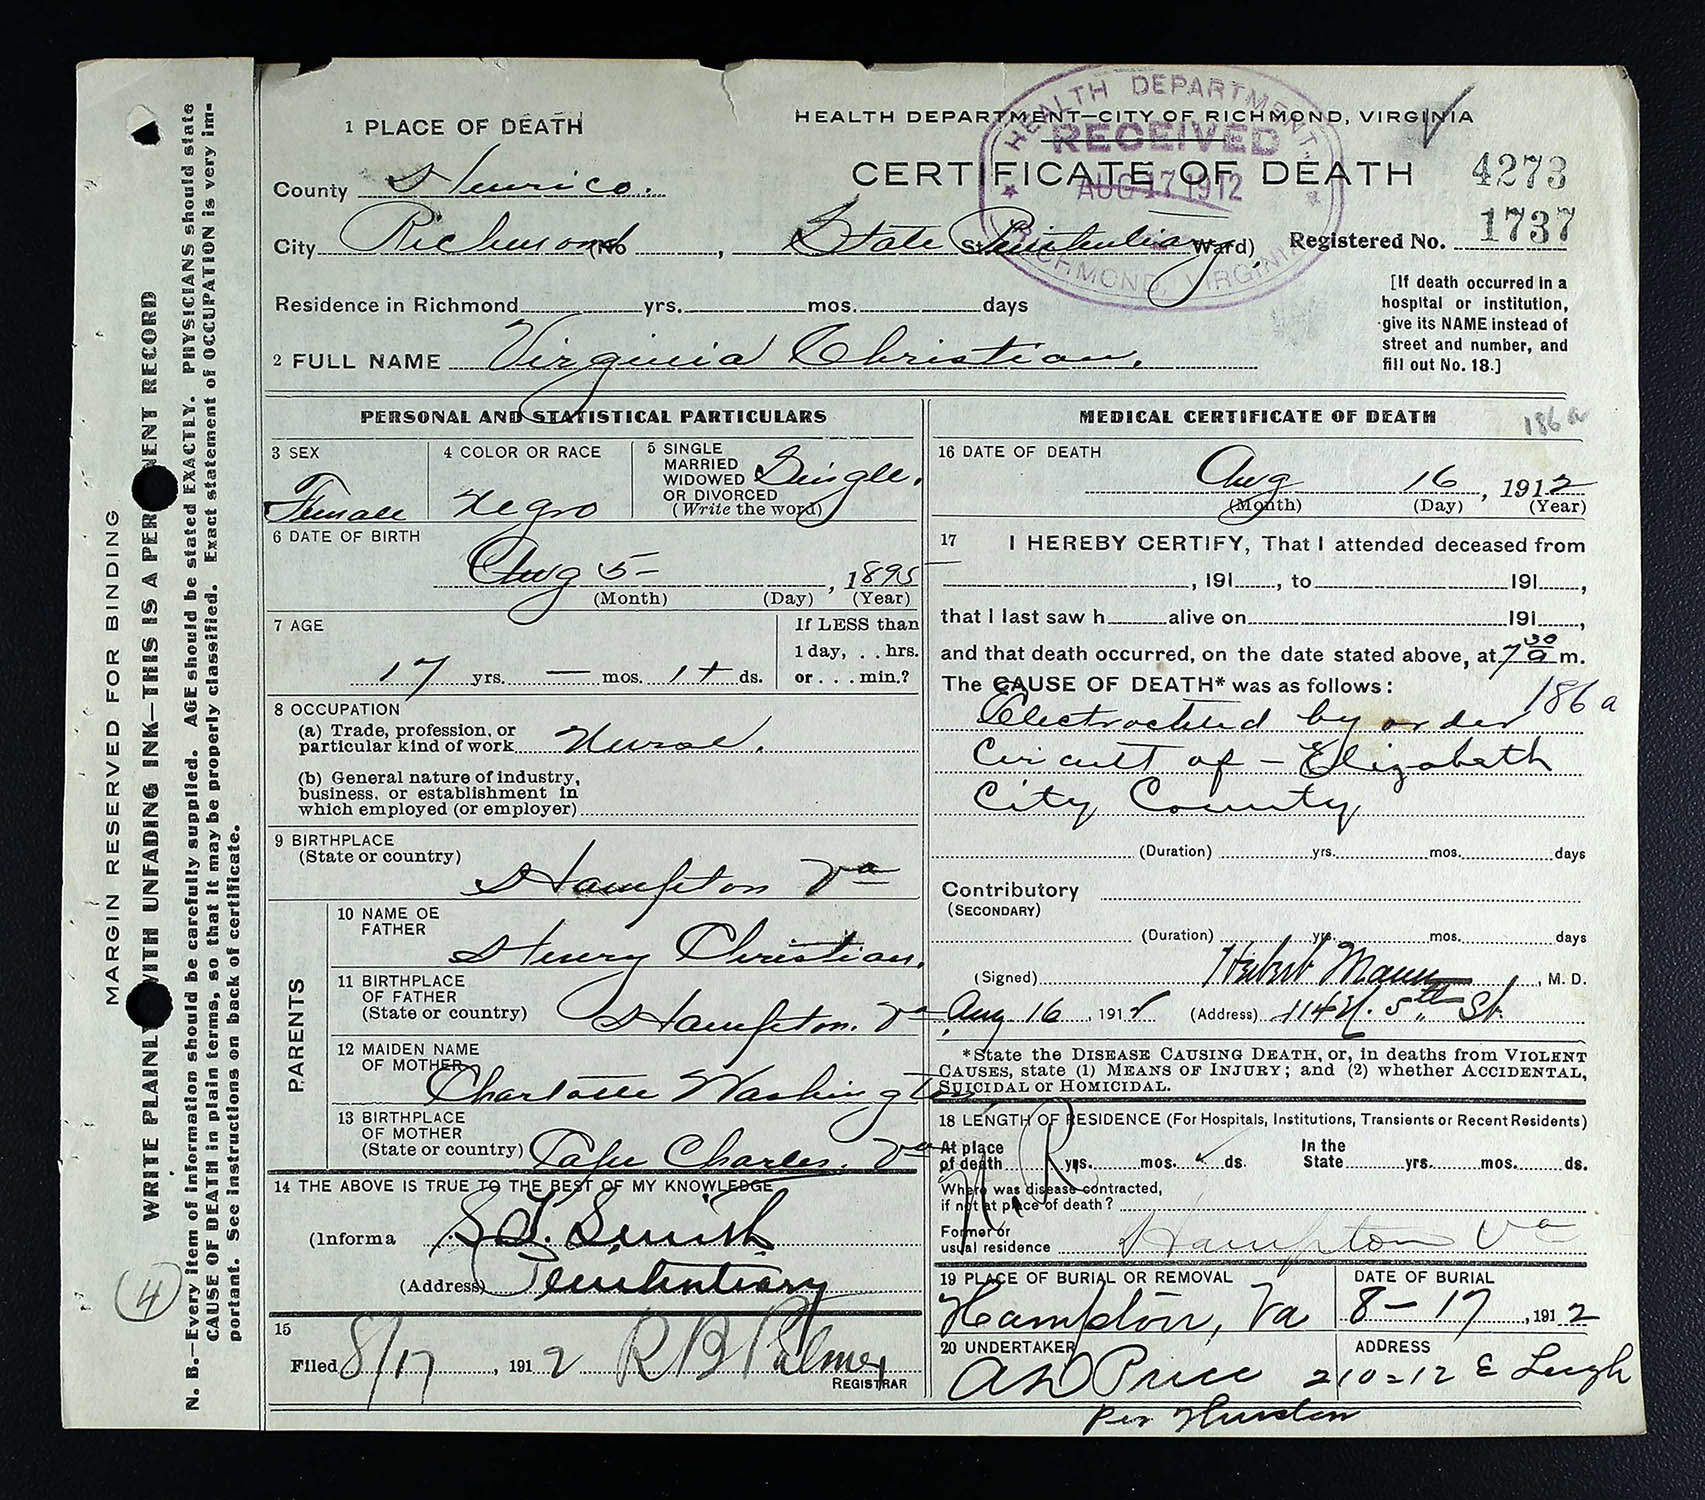 MARGIN RESERVED FOR BINDING
WRITE PLAINLY WITH UNFADING INK—THIS IS A PERMANENT RECORD
N. B.—Every item of information should be carefully supplied. AGE should be stated EXACTLY. PHYSICIANS should state
CAUSE OF DEATH in plain terms, so that it may be properly classified. Exact statement of OCCUPATION is very im-
portant. See instructions on back of certificate.
4
HEALTH DEPARTMENT—CITY OF RICHMOND, VIRGINIA
CERTIFICATE OF DEATH
HEALTH DEPARTMENT
RECEIVED
AUG 17 1912
RICHMOND, VIRGINIA
4273
1737
Registered No.
[If death occurred in a
hospital or institution,
give its NAME instead of
street and number, and
fill out No. 18.]
1 PLACE OF DEATH
County Henrico.
City Richmond (No , State St. Penitentiary Ward)
Residence in Richmond yrs. mos. days
2 FULL NAME Virginia Christian.
PERSONAL AND STATISTICAL PARTICULARS
3 SEX
Female
4 COLOR OR RACE
Negro
5 SINGLE
MARRIED
WIDOWED
OR DIVORCED
(Write the word)
Single.
6 DATE OF BIRTH
Aug 5- , 1895
(Month) (Day) (Year)
7 AGE
17 yrs. — mos. 11 ds.
If LESS than
1 day, . . hrs.
or . . . min.?
8 OCCUPATION
(a) Trade, profession, or
particular kind of work Nurse.
(b) General nature of industry,
business, or establishment in
which employed (or employer)
9 BIRTHPLACE
(State or country)
Hampton Va
PARENTS
10 NAME OF
FATHER
Henry Christian.
11 BIRTHPLACE
OF FATHER
(State or country)
Hampton. Va
12 MAIDEN NAME
OF MOTHER
Charlotte Washington
13 BIRTHPLACE
OF MOTHER
(State or country) Cape Charles. Va
14 THE ABOVE IS TRUE TO THE BEST OF MY KNOWLEDGE
(Informa Smith
(Address) Penitentiary
15
Filed 8/17 , 1912 R B Palmer
REGISTRAR
MEDICAL CERTIFICATE OF DEATH
186a
16 DATE OF DEATH
Aug 16 , 1912
(Month) (Day) (Year)
17 I HEREBY CERTIFY, That I attended deceased from
, 191 , to 191 ,
that I last saw h alive on 191 ,
and that death occurred, on the date stated above, at 7 30 a m.
The CAUSE OF DEATH* was as follows:
186a
Electrocuted by order
Circuit of - Elizabeth
City County
(Duration) yrs. mos. days
Contributory
(SECONDARY)
(Duration) yrs. mos. days
(Signed) Herbert Mann , M. D.
Aug 16 , 1912 (Address) 114 N. 5th St.
*State the DISEASE CAUSING DEATH, or, in deaths from VIOLENT
CAUSES, state (1) MEANS OF INJURY; and (2) whether ACCIDENTAL,
SUICIDAL or HOMICIDAL.
18 LENGTH OF RESIDENCE (For Hospitals, Institutions, Transients or Recent Residents)
At place
of death yrs. mos. ds.
In the
State yrs. mos. ds.
N.R.
Where was disease contracted,
if not at place of death?
Former or
usual residence Hampton Va
19 PLACE OF BURIAL OR REMOVAL
Hampton, Va
DATE OF BURIAL
8-17 , 1912
20 UNDERTAKER
A D Price
per Thurston
ADDRESS
210=12 E Leigh